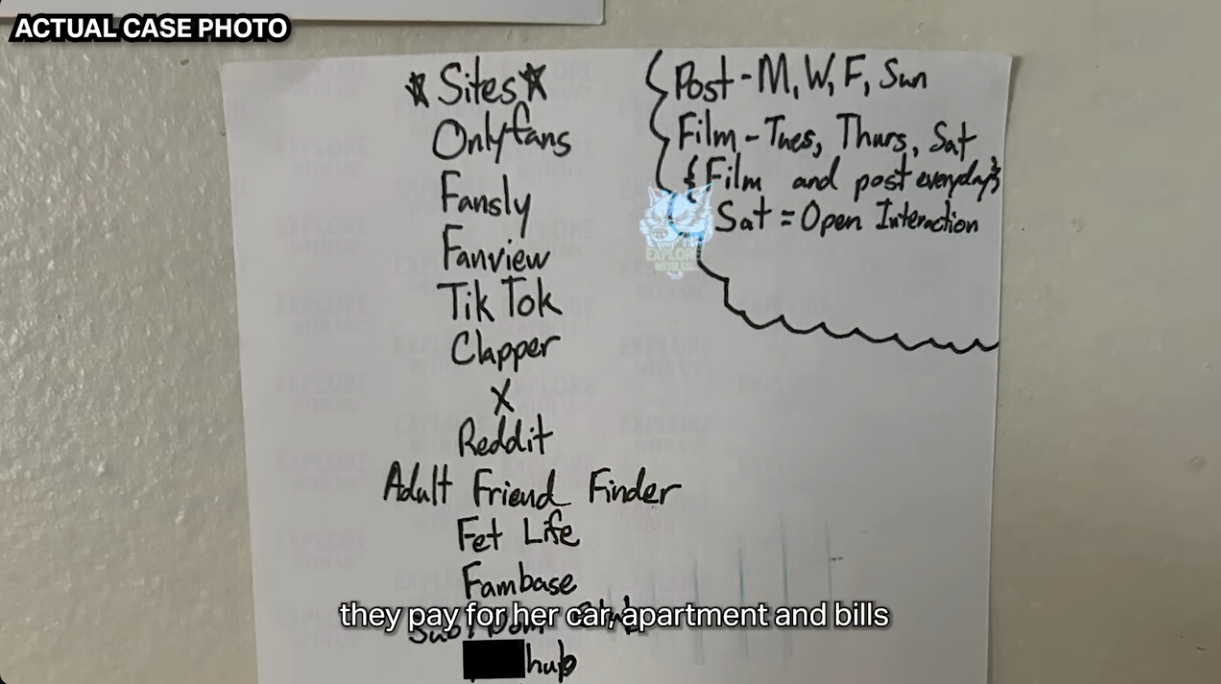 ACTUAL CASE PHOTO
☆Sites☆
Onlyfans
Fansly
Fanview
Tik Tok
Clapper
X
Reddit
Adult Friend Finder
Fet Life
Fambase
hub
Post - M, W, F, Sun
Film - Tues, Thurs, Sat
{Film and post everyday}
Sat = Open Interaction
EXPLORE
WITH US
they pay for her car, apartment and bills